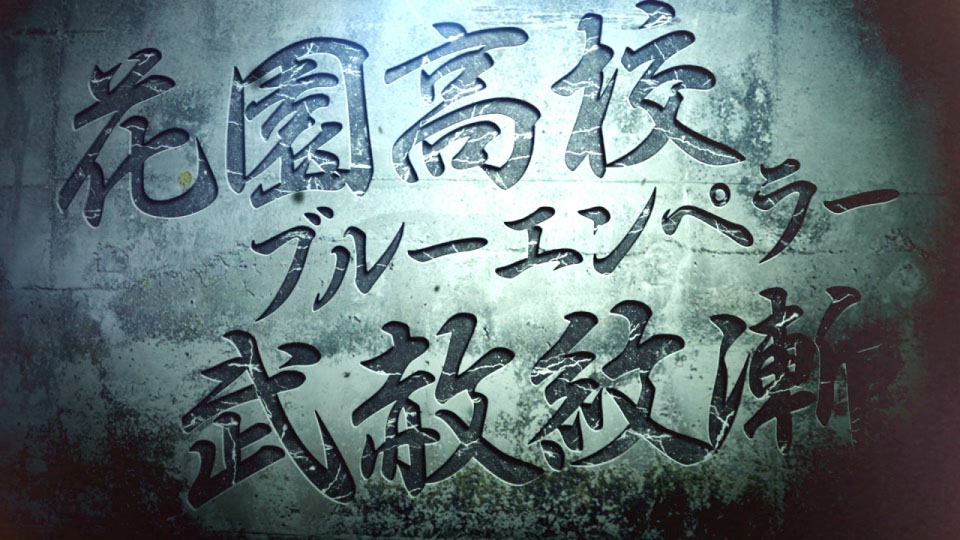 花園高校
ブルーエンペラー
武赦紋漸